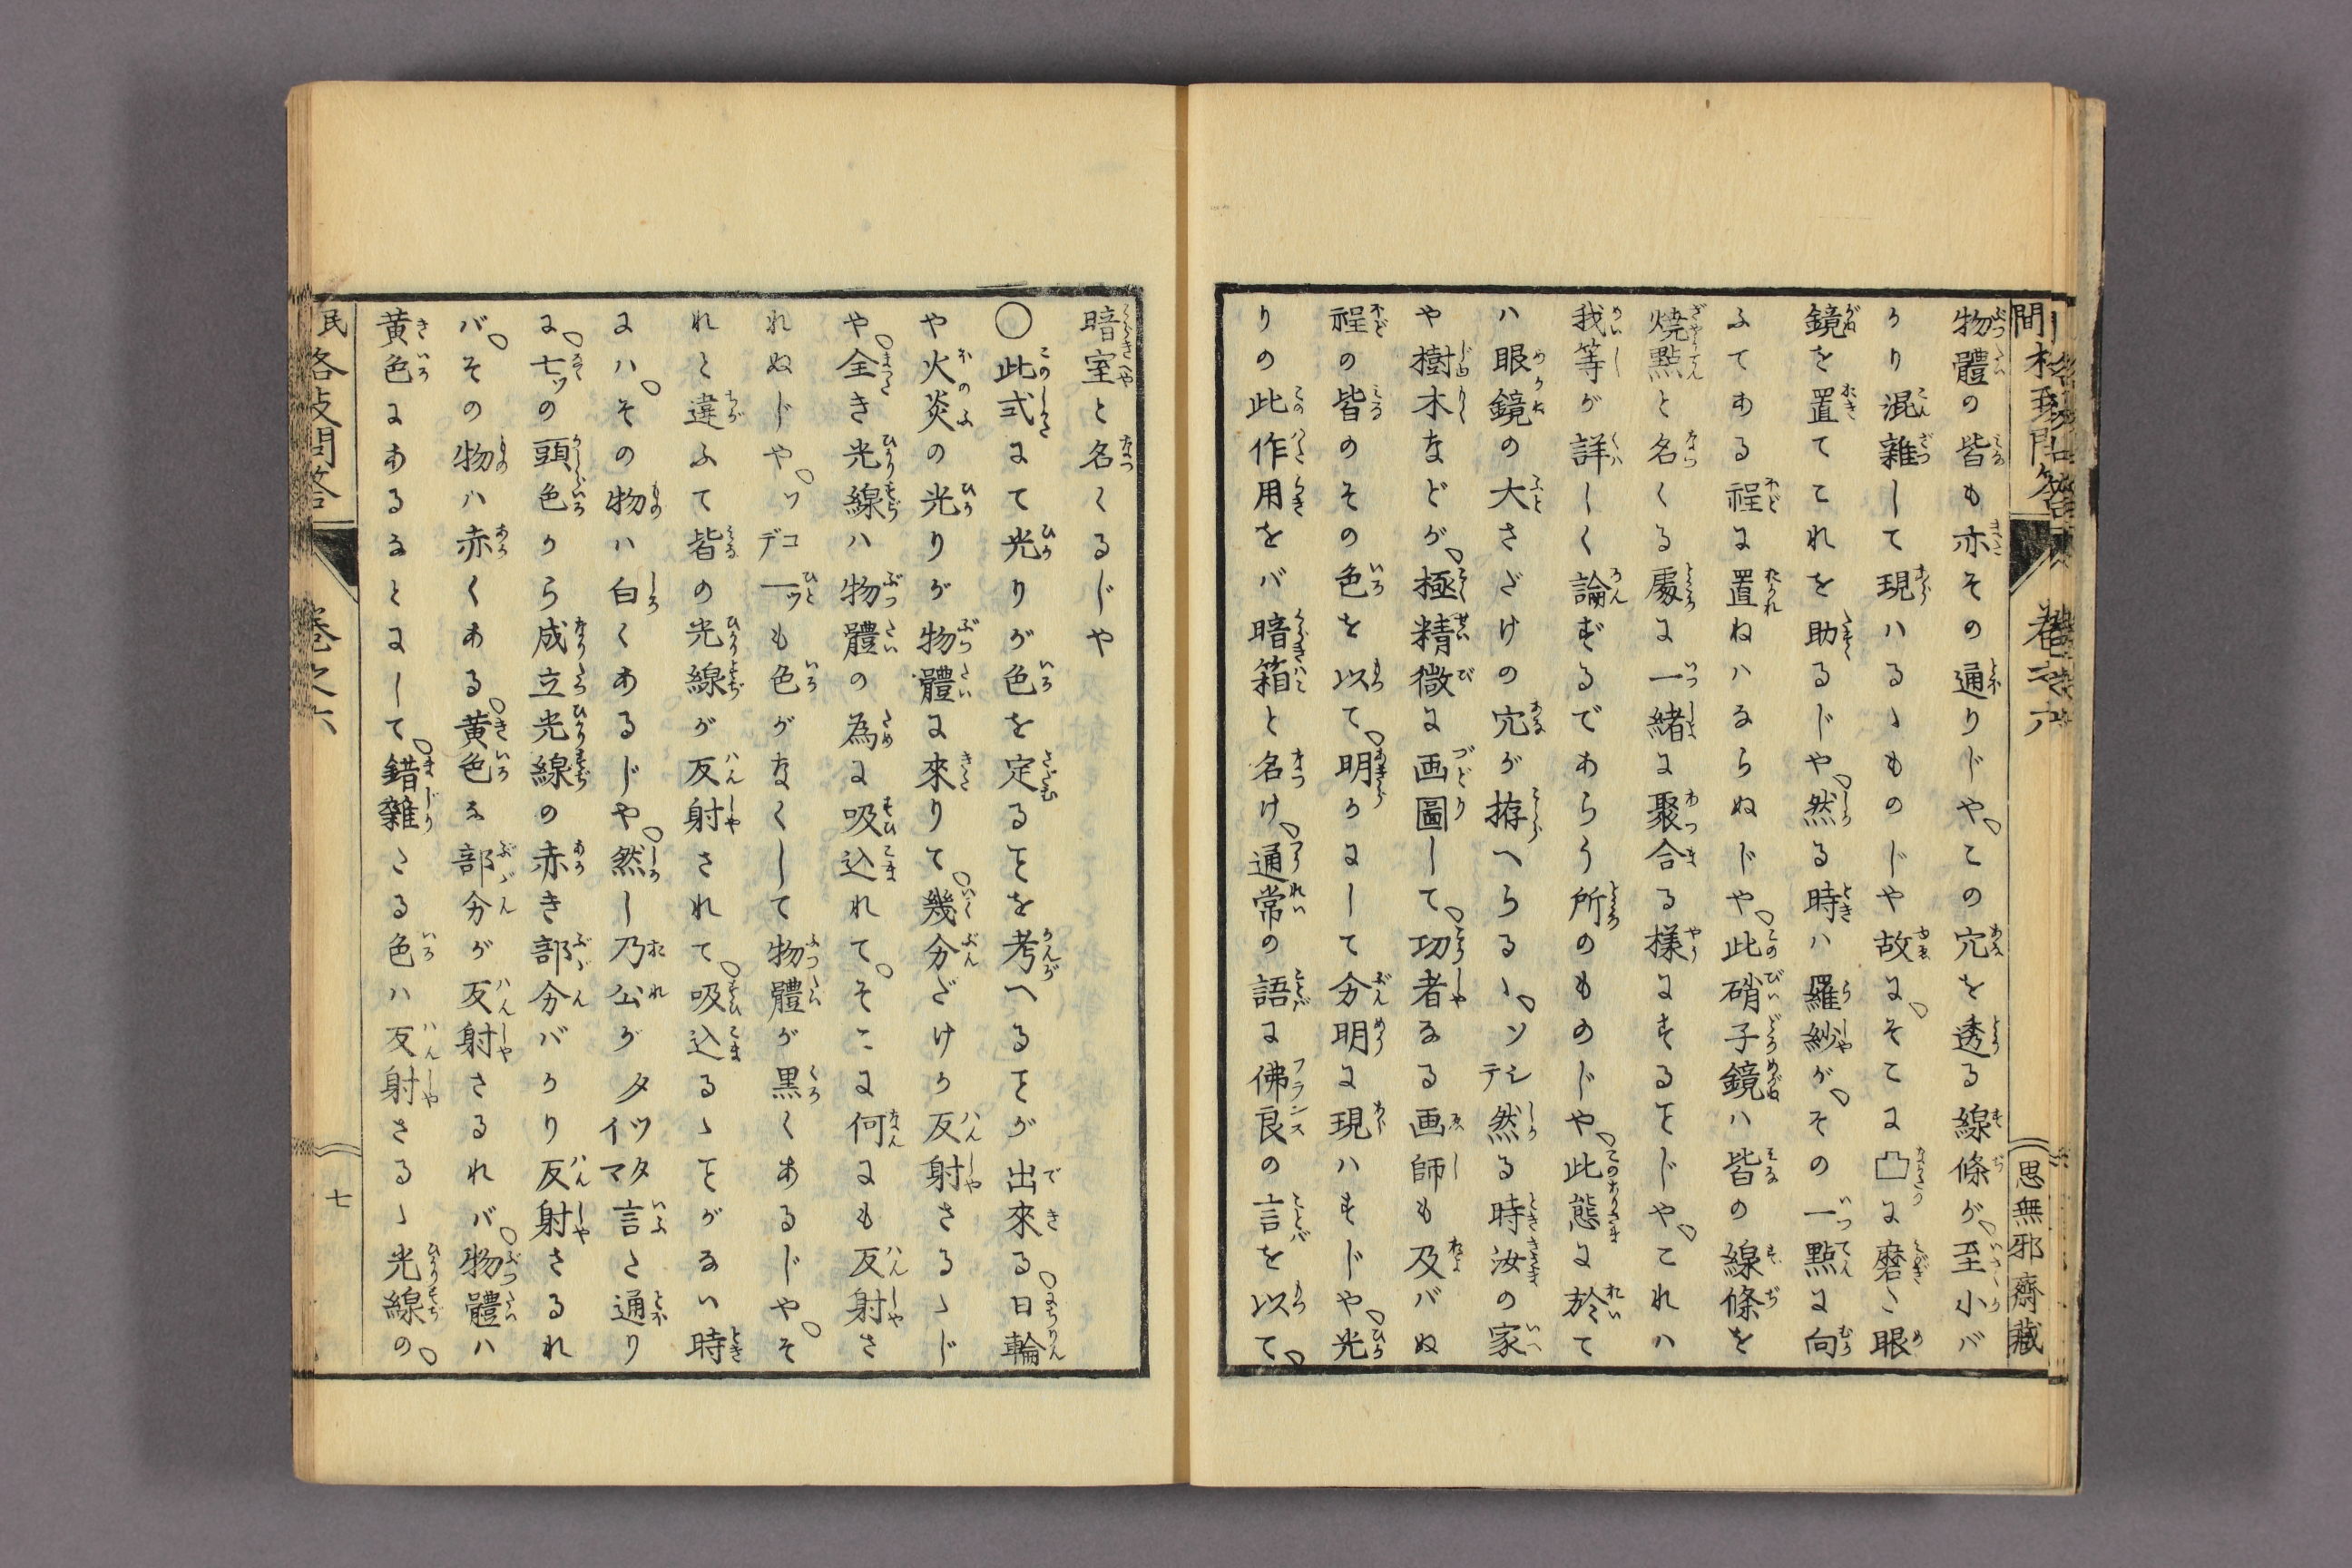 物體の皆も亦その通りじや。この穴を透る線條が。至小バ
かり混雜して現ハるゝものじや故に。そこに凸に磨た眼
鏡を置てこれを助るじや。然る時ハ羅紗が。その一點に向
ふてある程に置ねハならぬじや。此硝子鏡ハ皆の線條を
燒點と名くる處に一緒に聚合る樣にするヿじや。これハ
我等が詳しく論ずるであらう所のものじや。此態に於て
ハ眼鏡の大さだけの穴が拵へらるゝ。ソシテ然る時汝の家
や樹木などが。極精微に画圖して。功者なる画師も及バぬ
程の皆のその色を以て。明かにして分明に現ハすじや。光
りの此作用をバ暗箱と名け。通常の語に佛良の言を以て。
思無邪齋藏
暗室と名くるじや
〇此式にて光りが色を定るヿを考へるヿが出來る。日輪
や火炎の光りが物體に來りて。幾分だけか反射さるゝじ
や。全き光線ハ物體の為に吸込れて。そこに何にも反射さ
れぬじや。ソコデ一ツも色がなくして物體が黒くあるじや。そ
れと違ふて皆の光線が反射されて。吸込るゝヿがない時
にハ。その物ハ白くあるじや。然し乃公がタッタイマ言た通り
に。七ツの頭色から成立光線の赤き部分バかり反射さるれ
バ。その物ハ赤くある。黄色な部分が反射さるれバ。物體ハ
黄色にあるなとにして。錯雜たる色ハ反射さるゝ光線の。
民格致問答
卷之六
七